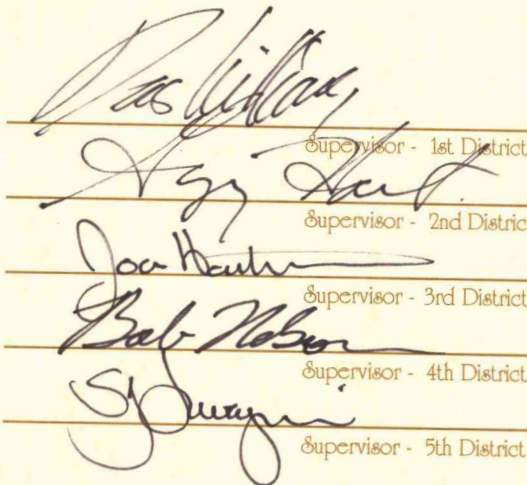 Das Williams
Supervisor - 1st District
Supervisor - 2nd Distric
Joan Hartmann
Supervisor - 3rd District
Bob Nelson
Supervisor - 4th District
Supervisor - 5th District